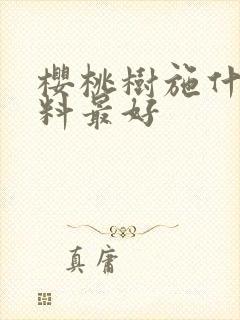 櫻桃樹施什
料最好
真庸